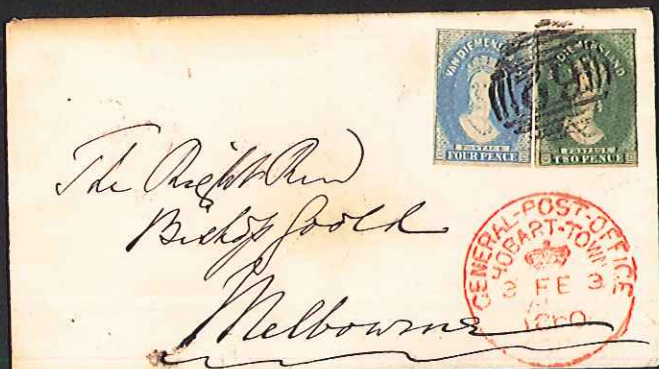 VAN DIEMENS LAND
POSTAGE
FOUR PENCE
DIEMENS LAND
POSTAGE
TWO PENCE
The Right Revd
Bishop Goold
Melbourne
GENERAL-POST-OFFICE
HOBART-TOWN
3 FE 3
1860